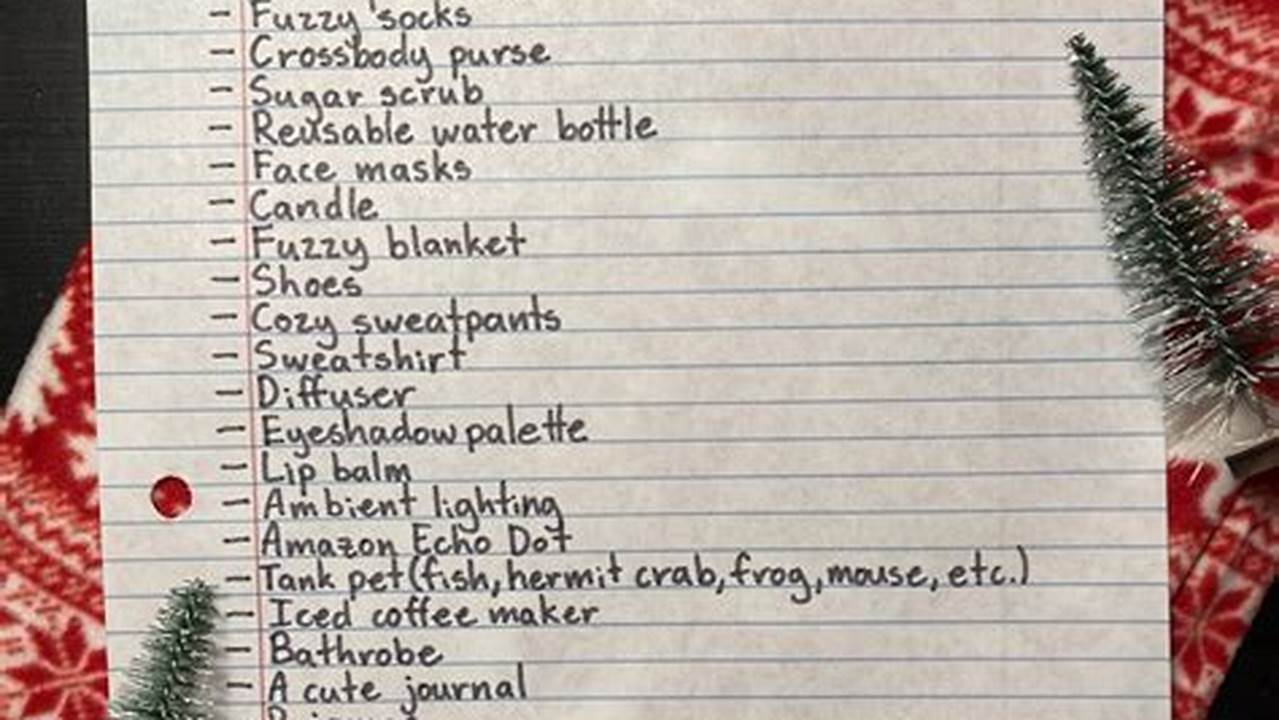 - Fuzzy socks
- Crossbody purse
- Sugar scrub
- Reusable water bottle
- Face masks
- Candle
- Fuzzy blanket
- Shoes
- Cozy sweatpants
- Sweatshirt
- Diffuser
- Eyeshadow palette
- Lip balm
- Ambient lighting
- Amazon Echo Dot
- Tank pet (fish, hermit crab, frog, mouse, etc.)
- Iced coffee maker
- Bathrobe
- A cute journal